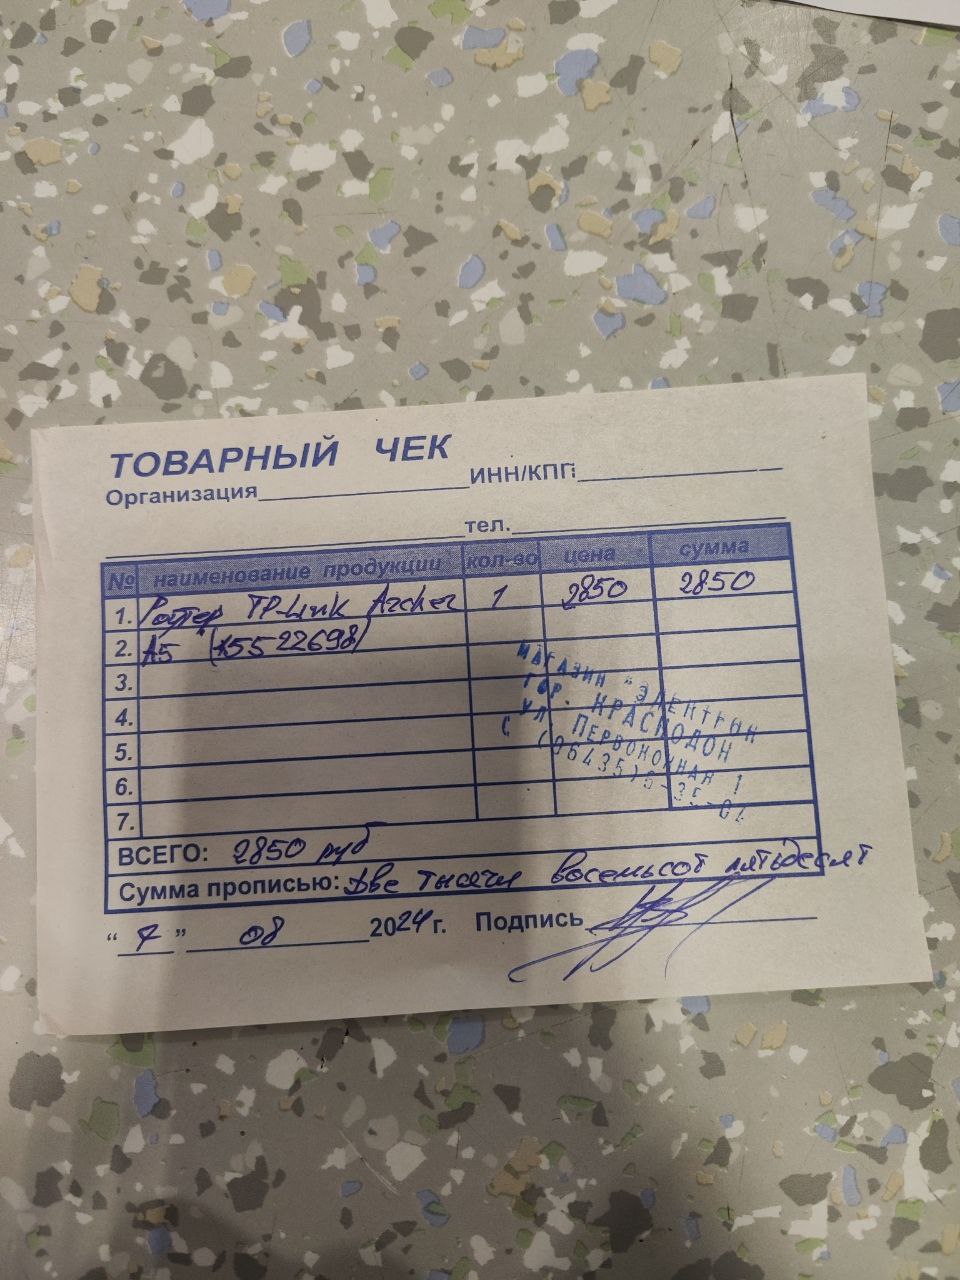 ТОВАРНЫЙ ЧЕК
Организация ИНН/КПП
тел.
№ наименование продукции кол-во цена сумма
1. Роутер TP-Link Archer 1 2850 2850
2. A5 (X5522698)
3.
4.
5.
6.
7.
МАГАЗИН "ЭЛЕКТРИК
ГОР. КРАСНОДОН
УЛ. ПЕРВОКОННАЯ 1
(06435)6-35-02
ВСЕГО: 2850 руб
Сумма прописью: Две тысячи восемьсот пятьдесят
" 7 " 08 2024 г. Подпись